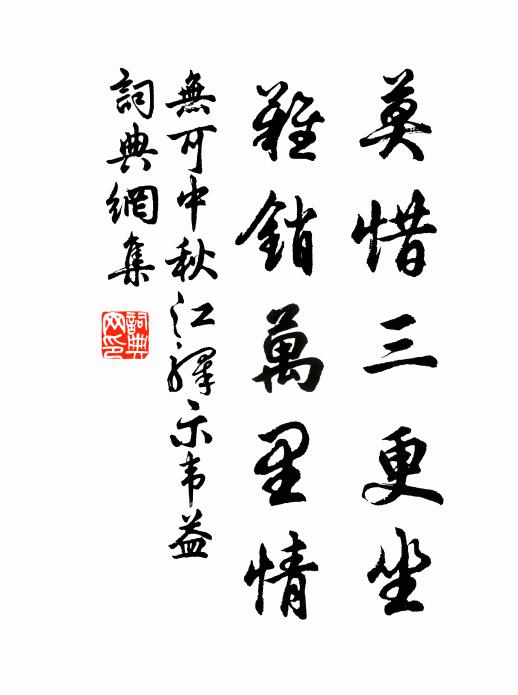 莫惜三更坐
難銷萬里情
無可中秋江驛示韦益
詞典網集
詞典网印